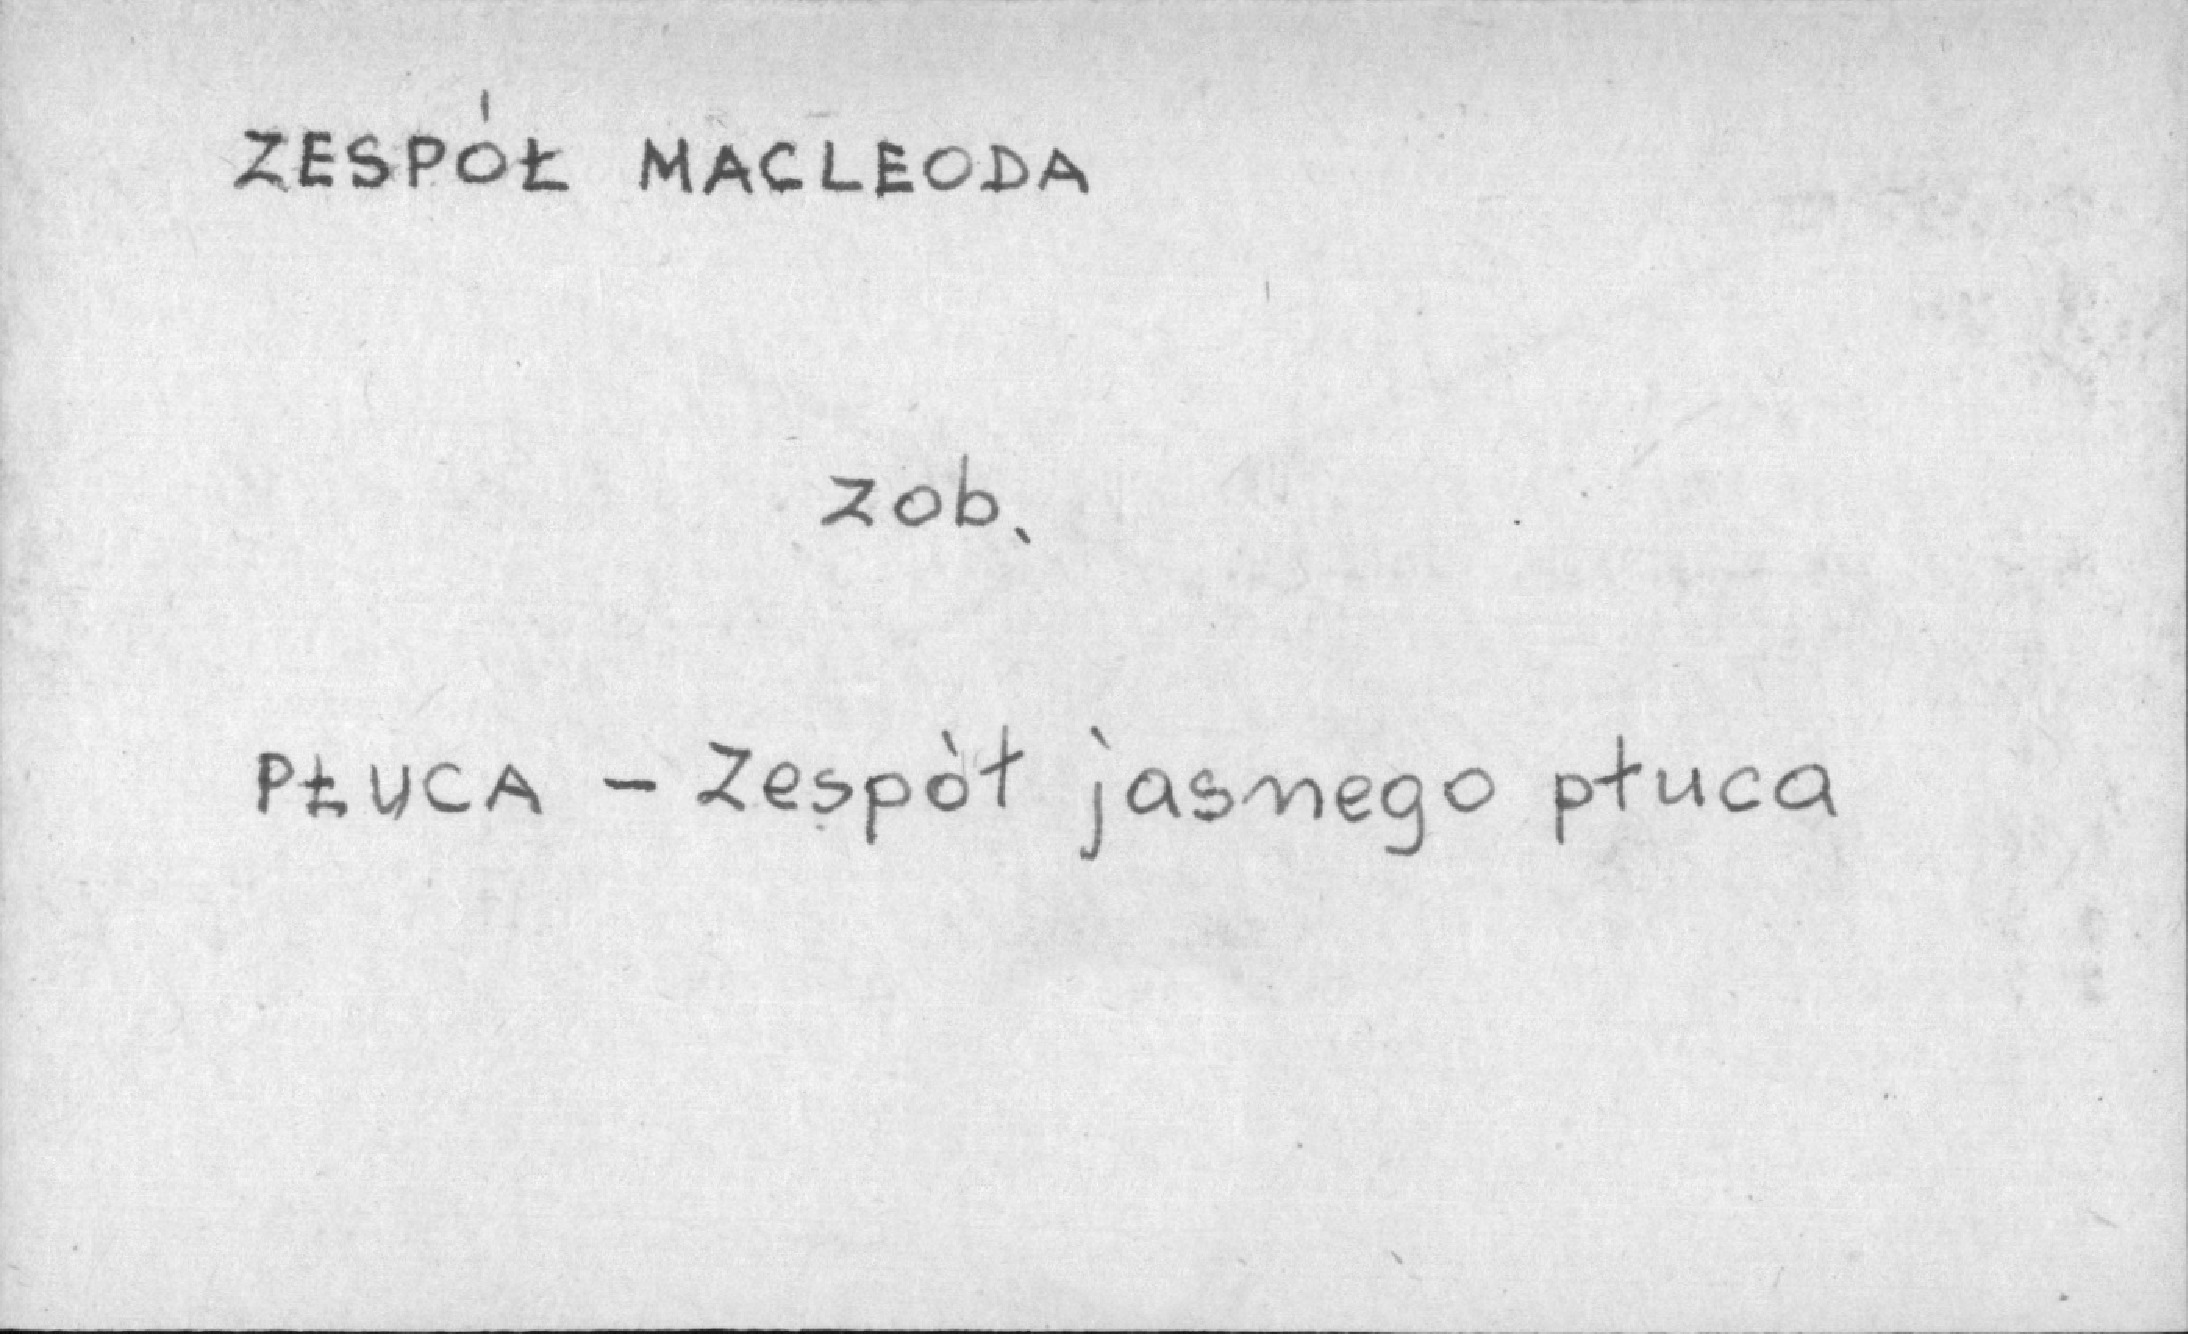 ZESPÓŁ MACLEODA
zob.
PŁUCA - Zespół jasnego płuca